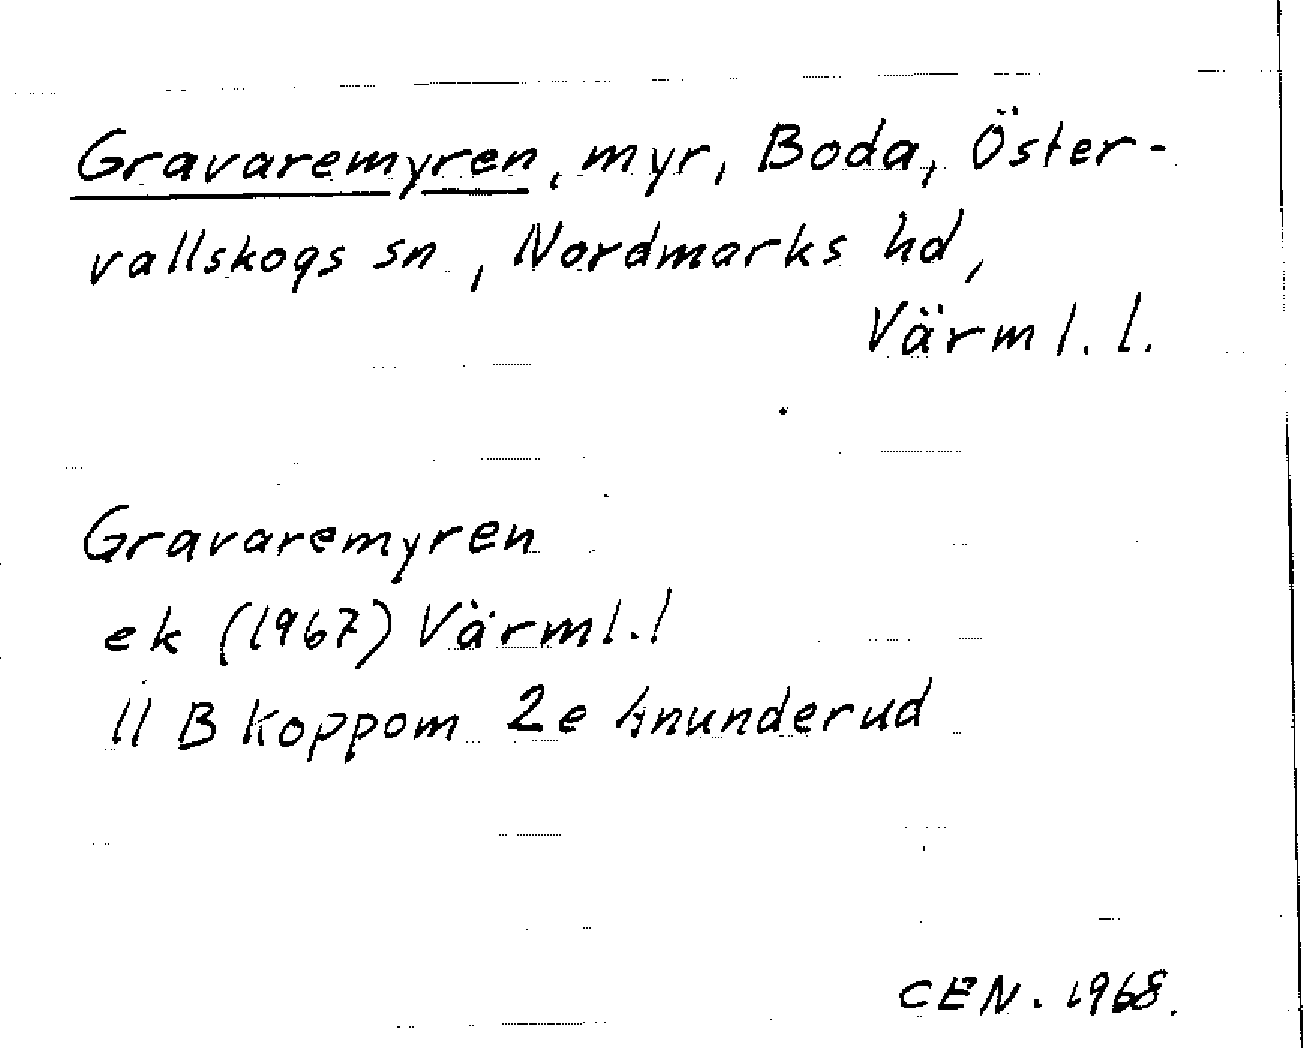 Gravaremyren, myr, Boda, Öster-
vallskogs sn, Nordmarks hd,
Värml. l.
Gravaremyren
ek (1967) Värml. l
11 B Koppom 2e Anunderud
CEN. 1968.